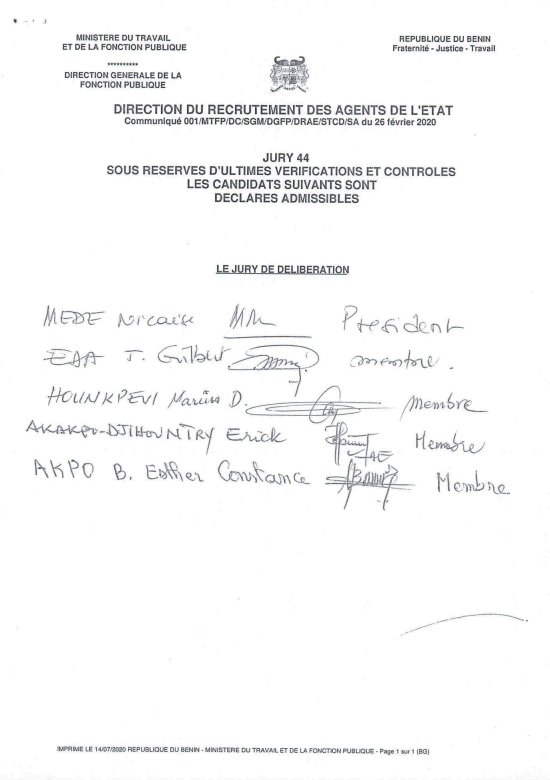 MINISTERE DU TRAVAIL
ET DE LA FONCTION PUBLIQUE
**********
DIRECTION GENERALE DE LA
FONCTION PUBLIQUE
REPUBLIQUE DU BENIN
Fraternité - Justice - Travail
DIRECTION DU RECRUTEMENT DES AGENTS DE L'ETAT
Communiqué 001/MTFP/DC/SGM/DGFP/DRAE/STCD/SA du 26 février 2020
JURY 44
SOUS RESERVES D'ULTIMES VERIFICATIONS ET CONTROLES
LES CANDIDATS SUIVANTS SONT
DECLARES ADMISSIBLES
LE JURY DE DELIBERATION
MEDE Nicaise President
T. Gilbert membre.
HOUNKPEVI Marius D. Membre
AKAKPO-DJIHOUNTRY Erick Membre
AKPO B. Esther Constance Membre
IMPRIME LE 14/07/2020 REPUBLIQUE DU BENIN - MINISTERE DU TRAVAIL ET DE LA FONCTION PUBLIQUE - Page 1 sur 1 (BG)